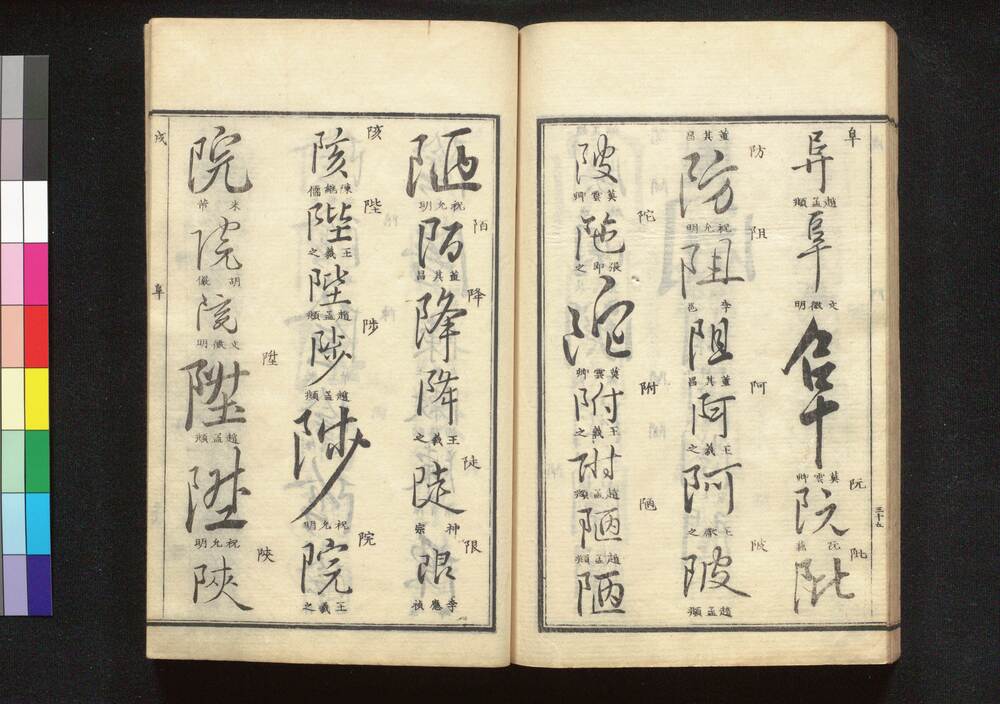 阜
阜
趙孟頫
阜
文徵明
阜
莫雲卿
阮
阮
阰
阰
三十五
董其昌
防
防
祝允明
阻
阻
李邕
阻
董其昌
阿
阿
王羲之
阿
王獻之
陂
陂
趙孟頫
陂
莫雲卿
陀
陀
張即之
陀
莫雲卿
附
附
王羲之
附
趙孟頫
陋
陋
趙孟頫
陋
陋
祝允明
陌
陌
董其昌
降
降
降
王羲之
陡
陡
神宗
限
限
李應禎
陔
陔
陳繼儒
陛
陛
王羲之
陛
趙孟頫
陟
陟
趙孟頫
陟
祝允明
院
院
王羲之
院
米芾
院
胡儼
院
文徵明
陞
陞
趙孟頫
陞
祝允明
陝
陝
戌
阜